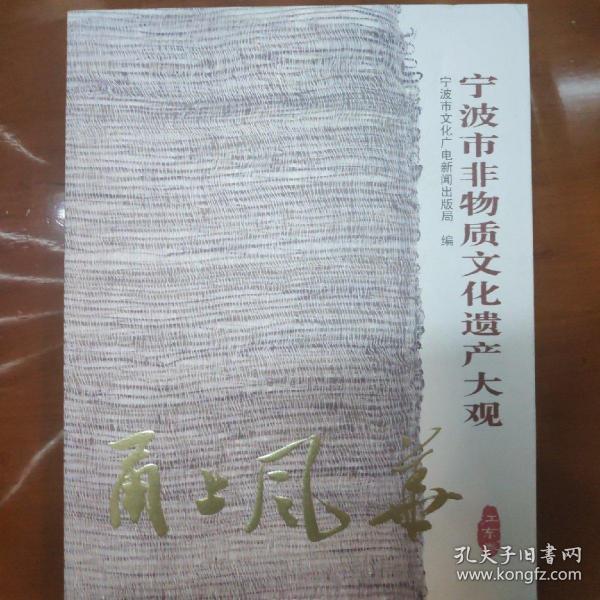 宁波市非物质文化遗产大观
宁波市文化广电新闻出版局 编
甬上风华
江东
孔夫子旧书网
www.kongfz.com